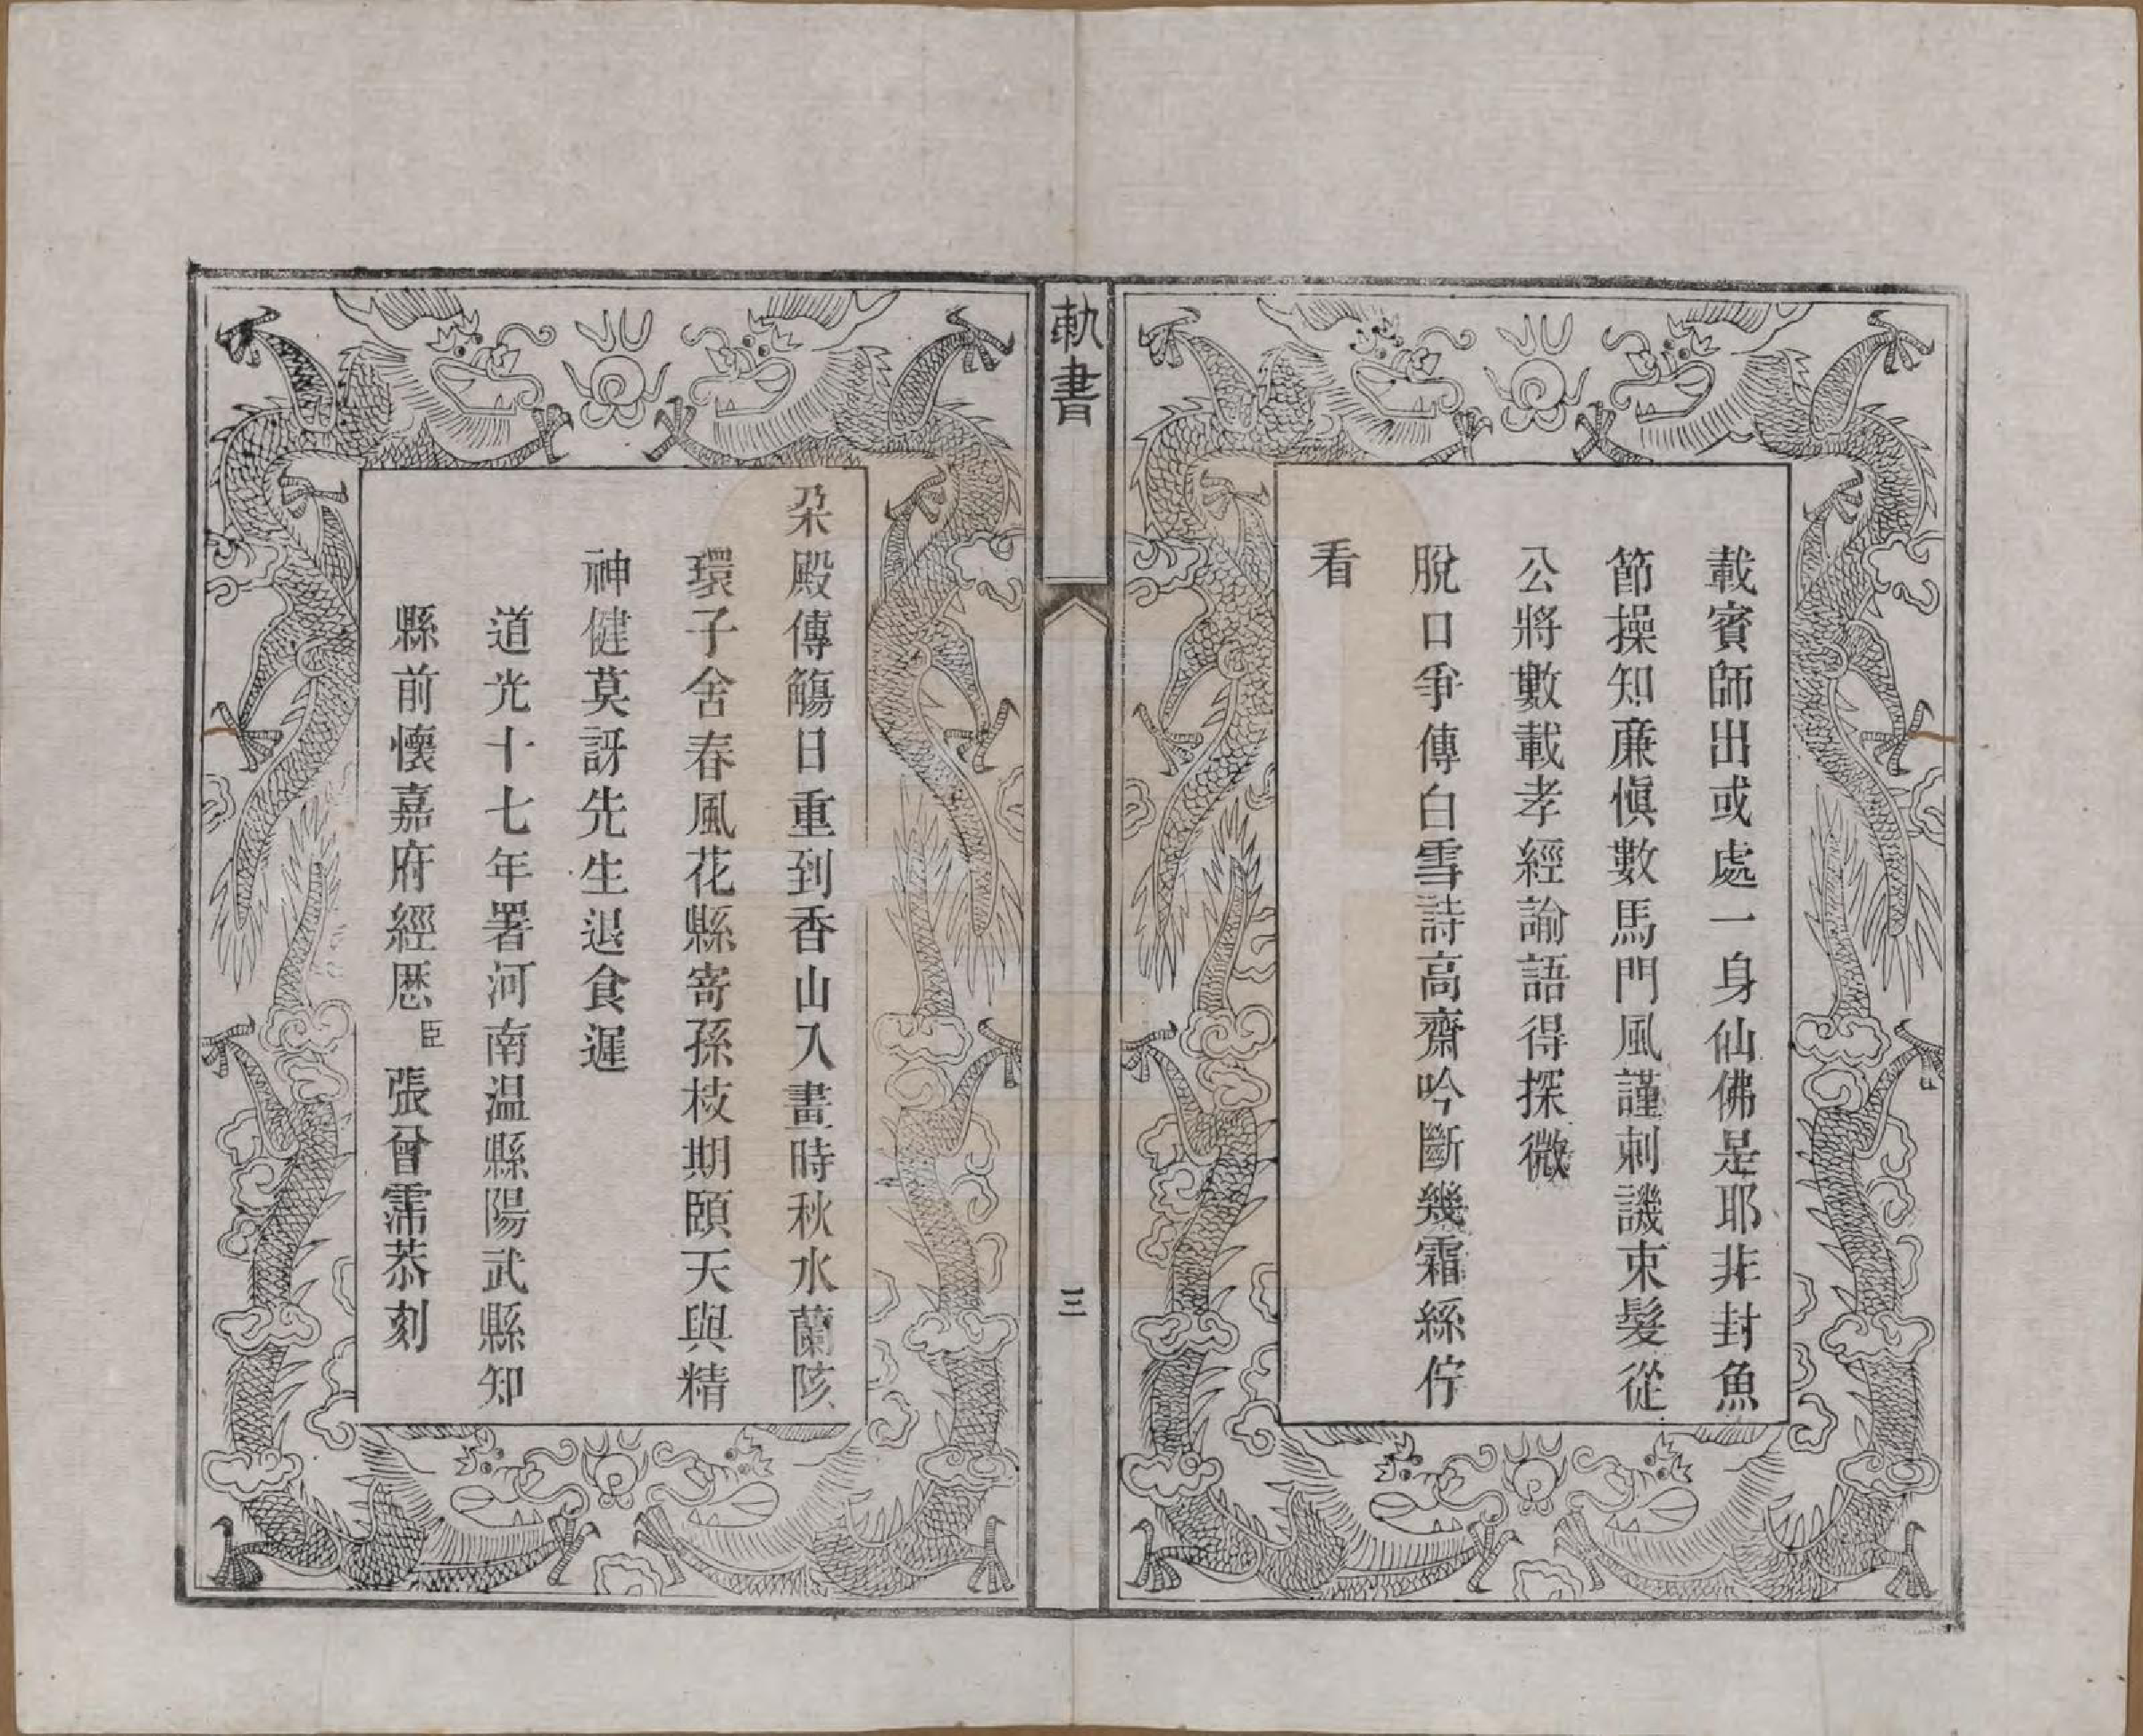 載賓師出或處一身仙佛是耶非封魚
節操知亷愼數馬門風謹刺譏束髮從
公將數載孝經論語得探微
脫口爭傳白雪詩高齋吟斷幾霜絲佇
看
軌書
三
朶殿傳觴日重到香山入畫時秋水蘭陔
環子舍春風花縣寄孫枝期頤天與精
神健莫訝先生退食遲
道光十七年署河南温縣陽武縣知
縣前懷嘉府經厯臣張曾霈恭刻